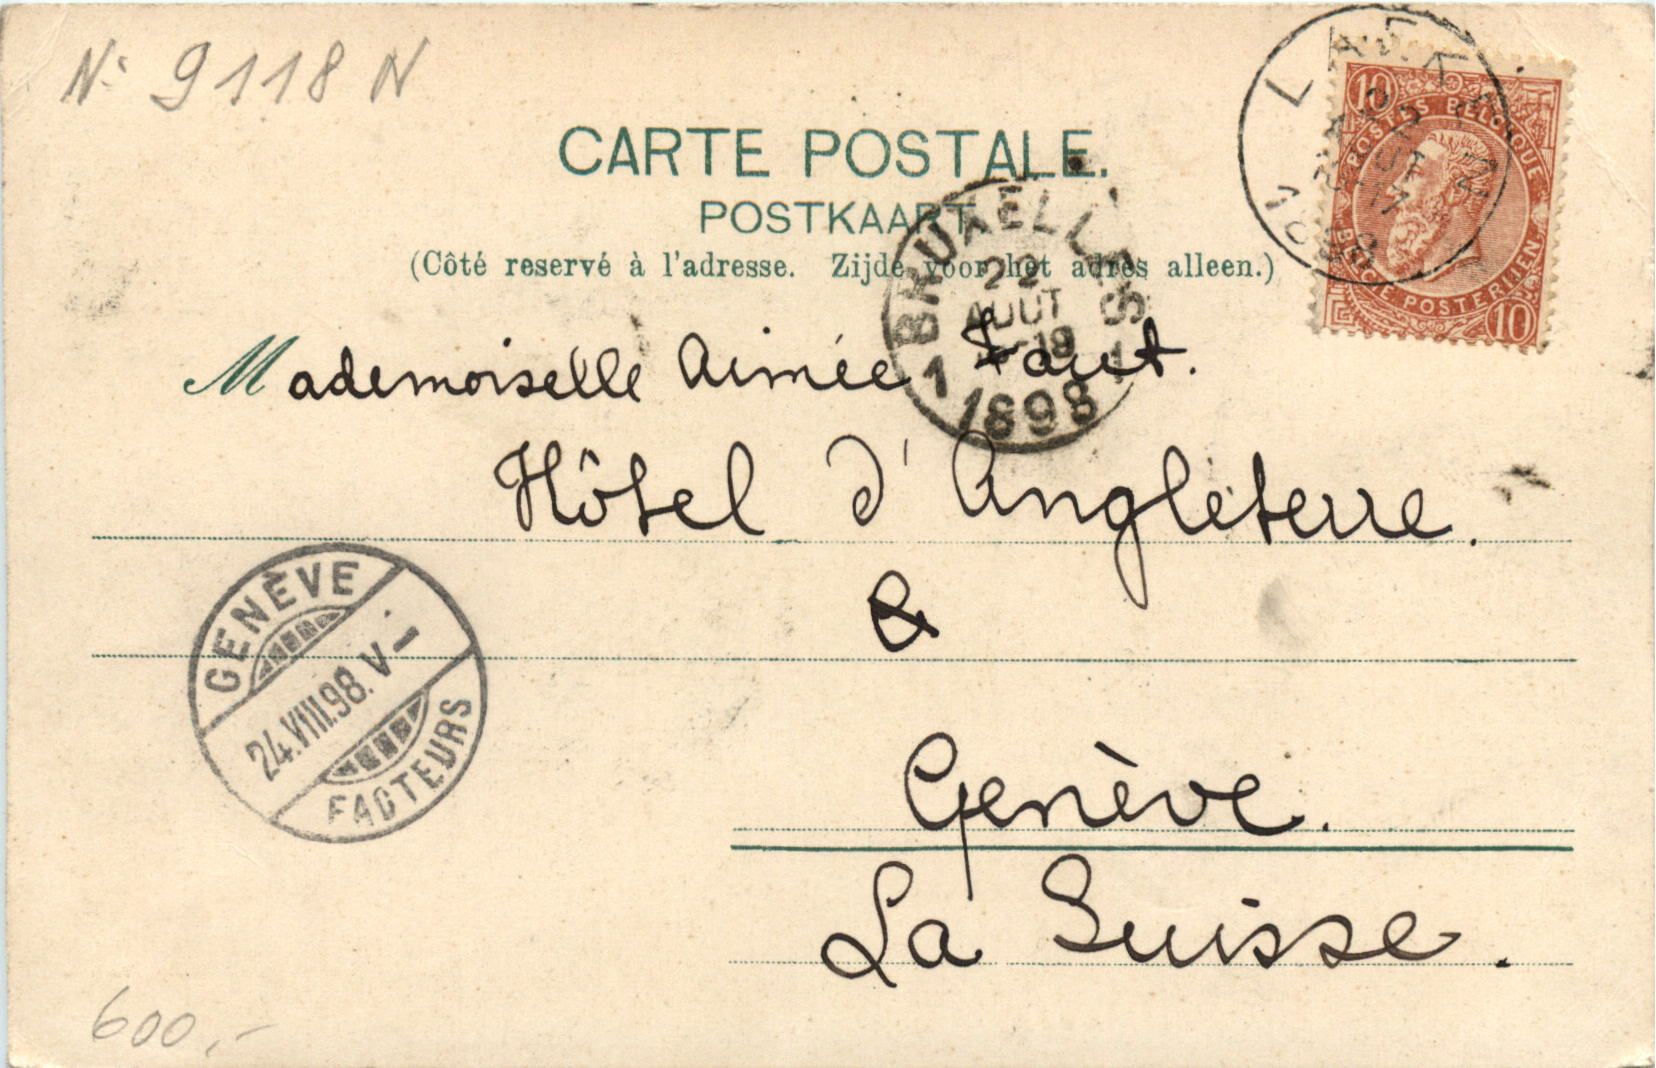 Nº 9118 N
CARTE POSTALE.
POSTKAART.
(Côté reservé à l'adresse. Zijde voor het adres alleen.)
LAEKEN
22
AOUT
17
1898
10 10
POSTES BELGIQUE
BELGIE POSTERIJEN
BRUXELLES
22
AOUT
18
1 1
1898
Mademoiselle Aimée
Hôtel d'Angleterre.
&
Genève.
La Suisse.
GENÈVE
24.VIII.98.V-
FACTEURS
600,-